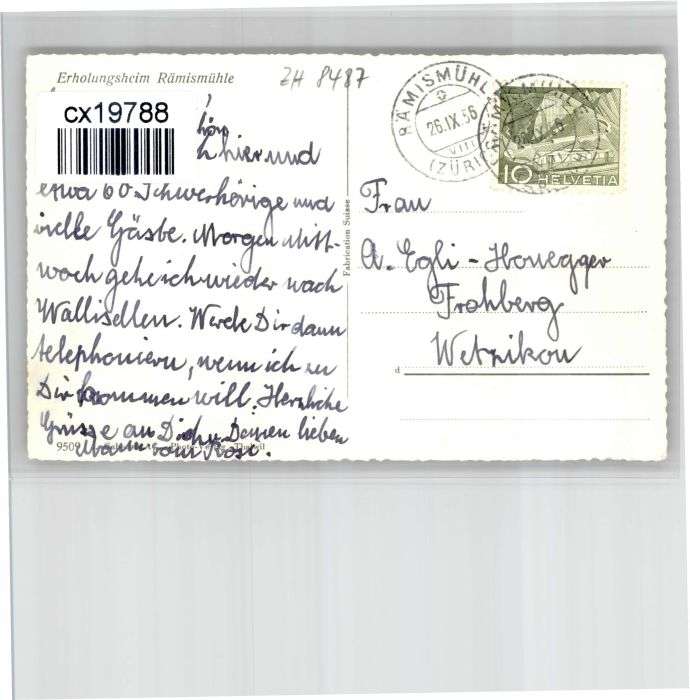 Erholungsheim Rämismühle
ZH 8487
cx19788
hier und
etwa 60 Schwerhörige und
viele Gäste. Morgen Mitt-
woch gehe ich wieder nach
Wallisellen. Werde Dir dann
telephonieren, wenn ich zu
Dir kommen will. Herzliche
Grüsse an Dich u. Deinen lieben
Mann von Rösi.
9509
Fabrication Suisse
RÄMISMÜHLE
26.IX.56
VIII
(ZÜRICH)
10 HELVETIA
Frau
A. Egli-Honegger
Frohberg
Wetzikon